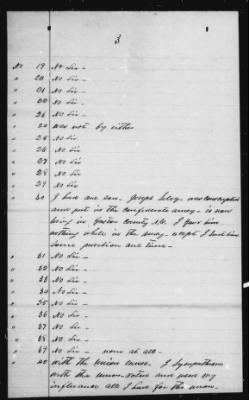 3
No 19 No Sir -
" 20 No Sir -
" 21 No Sir -
" 22 No Sir -
" 23 No Sir -
" 24 was not by either
" 25 No Sir
" 26 No Sir -
" 27 No Sir
" 28 No Sir -
" 29 No Sir -
" 30 I had one son - Joseph was conscripted
and put in the confederate army - is now
living in County I gave him
nothing while in the army - except I sent him
some provision one time -
" 31 No Sir -
" 32 No Sir -
" 33 No Sir -
" 34 No Sir -
" 35 No Sir -
" 36 No Sir -
" 37 No Sir -
" 38 No Sir -
" 39 No Sir - none at all -
" 40 with the Union cause. I sympathised
with the union voted and used my
influence all I have for the union